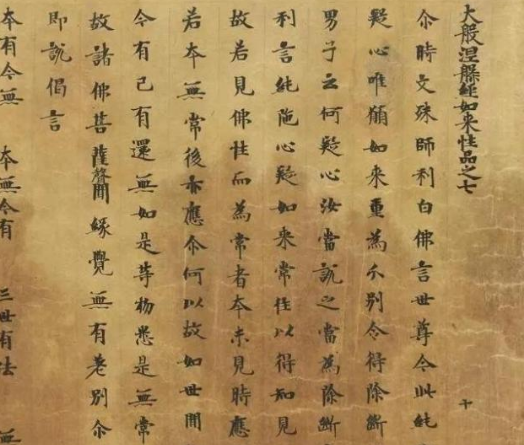 大般涅槃經如来性品之七 十
尒時文殊師利白佛言世尊今此純
疑心唯願如来重為分別令得除斷
男子云何疑心汝當說之當為除斷
利言純陁心疑如来常住以得知見
故若見佛性而為常者本未見時應
若本無常後亦應尒何以故如世間
今有已有還無如是等物悉是無常
故諸佛菩薩聲聞緣覺無有差別尒
即說偈言
本有今無 本無今有 三世有法 無